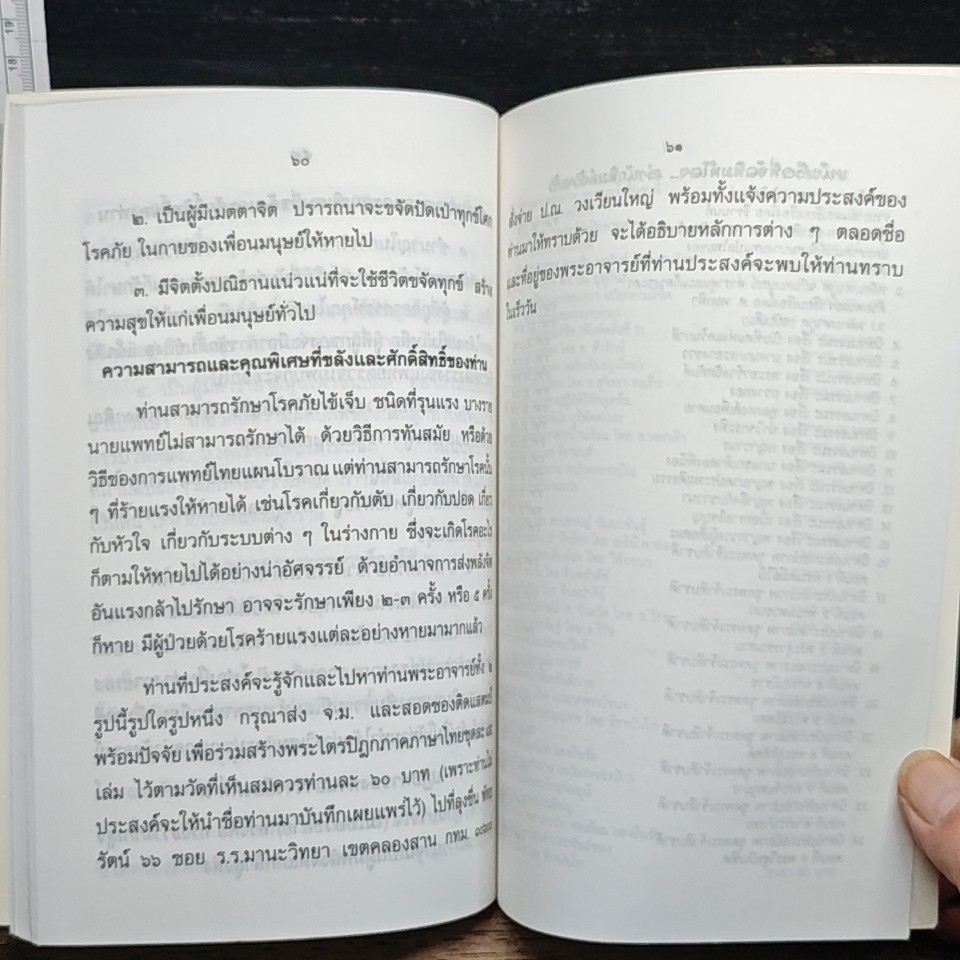 ๖๐
๒. เป็นผู้มีเมตตาจิต ปรารถนาจะขจัดปัดเป่าทุกข์โศก
โรคภัย ในกายของเพื่อนมนุษย์ให้หายไป
๓. มีจิตตั้งปณิธานแน่วแน่ที่จะใช้ชีวิตขจัดทุกข์ สร้าง
ความสุขให้แก่เพื่อนมนุษย์ทั่วไป
ความสามารถและคุณพิเศษที่ขลังและศักดิ์สิทธิ์ของท่าน
ท่านสามารถรักษาโรคภัยไข้เจ็บ ชนิดที่รุนแรง บางราย
นายแพทย์ไม่สามารถรักษาได้ ด้วยวิธีการทันสมัย หรือด้วย
วิธีของการแพทย์ไทยแผนโบราณ แต่ท่านสามารถรักษาโรคนั้น
ๆ ที่ร้ายแรงให้หายได้ เช่นโรคเกี่ยวกับตับ เกี่ยวกับปอด เกี่ยว
กับหัวใจ เกี่ยวกับระบบต่าง ๆ ในร่างกาย ซึ่งจะเกิดโรคอะไร
ก็ตามให้หายไปได้อย่างน่าอัศจรรย์ ด้วยอำนาจการส่งพลังจิต
อันแรงกล้าไปรักษา อาจจะรักษาเพียง ๒-๓ ครั้ง หรือ ๕ ครั้ง
ก็หาย มีผู้ป่วยด้วยโรคร้ายแรงแต่ละอย่างหายมามากแล้ว
ท่านที่ประสงค์จะรู้จักและไปหาท่านพระอาจารย์ทั้ง ๒
รูปนี้รูปใดรูปหนึ่ง กรุณาส่ง จ.ม. และสอดซองติดแสตมป์
พร้อมปัจจัย เพื่อร่วมสร้างพระไตรปิฎกภาคภาษาไทยชุดละ
เล่ม ไว้ตามวัดที่เห็นสมควรท่านละ ๖๐ บาท (เพราะท่าน
ประสงค์จะให้นำชื่อท่านมาบันทึกเผยแพร่ไว้) ไปที่ลุงชื่น
รัตน์ ๖๖ ซอย ร.ร.มานะวิทยา เขตคลองสาน กทม.
๖๑
สั่งจ่าย ป.ณ. วงเวียนใหญ่ พร้อมทั้งแจ้งความประสงค์ของ
ท่านมาให้ทราบด้วย จะได้อธิบายหลักการต่าง ๆ ตลอดชื่อ
และที่อยู่ของพระอาจารย์ที่ท่านประสงค์จะพบให้ท่านทราบ
ในเร็ววัน